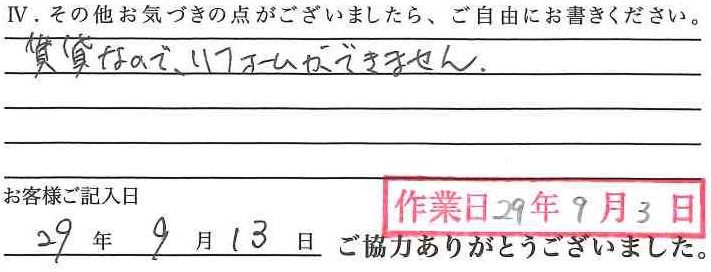 Ⅳ.その他お気づきの点がございましたら、ご自由にお書きください。
賃貸なので、リフォームができません.
お客様ご記入日
作業日29年9月3日
29年9月13日 ご協力ありがとうございました。